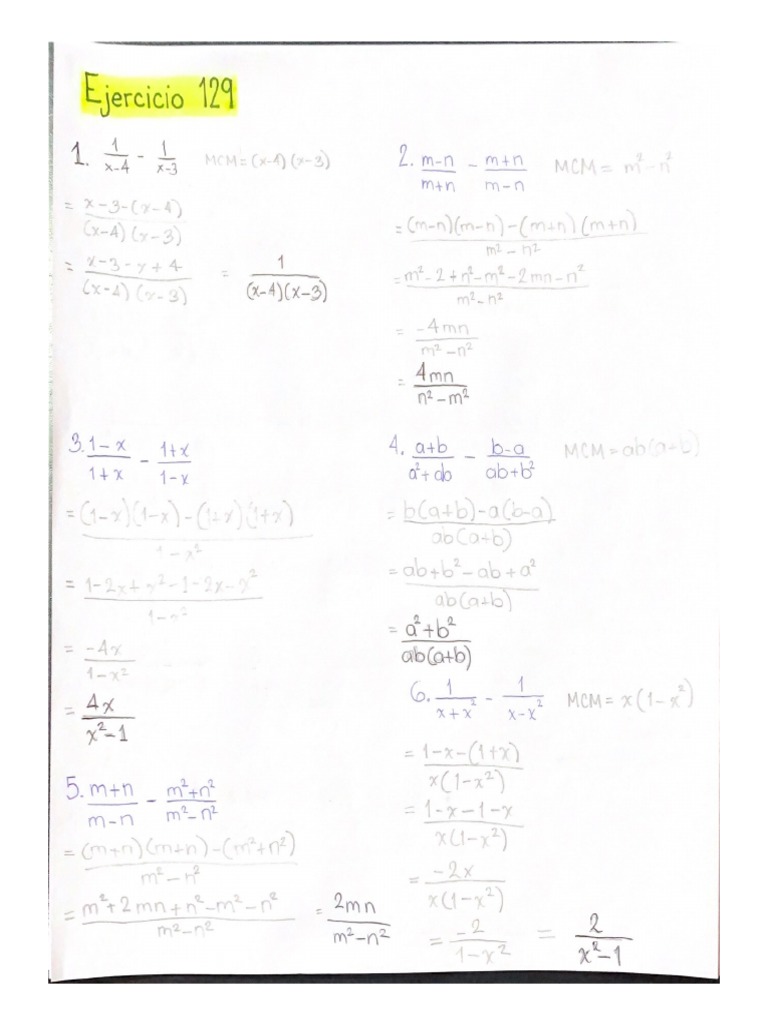 Ejercicio 129
1. 1/(x-4) - 1/(x-3) MCM=(x-4)(x-3)
= (x-3-(x-4))/((x-4)(x-3))
= (x-3-x+4)/((x-4)(x-3)) = 1/((x-4)(x-3))
2. (m-n)/(m+n) - (m+n)/(m-n) MCM= m²-n²
= ((m-n)(m-n)-(m+n)(m+n))/(m²-n²)
= (m²-2+n²-m²-2mn-n²)/(m²-n²)
= (-4mn)/(m²-n²)
= 4mn/(n²-m²)
3. (1-x)/(1+x) - (1+x)/(1-x)
= ((1-x)(1-x)-(1+x)(1+x))/(1-x²)
= (1-2x+x²-1-2x-x²)/(1-x²)
= (-4x)/(1-x²)
= 4x/(x²-1)
4. (a+b)/(a²+ab) - (b-a)/(ab+b²) MCM=ab(a+b)
= (b(a+b)-a(b-a))/(ab(a+b))
= (ab+b²-ab+a²)/(ab(a+b))
= (a²+b²)/(ab(a+b))
5. (m+n)/(m-n) - (m²+n²)/(m²-n²)
= ((m+n)(m+n)-(m²+n²))/(m²-n²)
= (m²+2mn+n²-m²-n²)/(m²-n²) = 2mn/(m²-n²)
6. 1/(x+x²) - 1/(x-x²) MCM= x(1-x²)
= (1-x-(1+x))/(x(1-x²))
= (1-x-1-x)/(x(1-x²))
= (-2x)/(x(1-x²))
= (-2)/(1-x²) = 2/(x²-1)